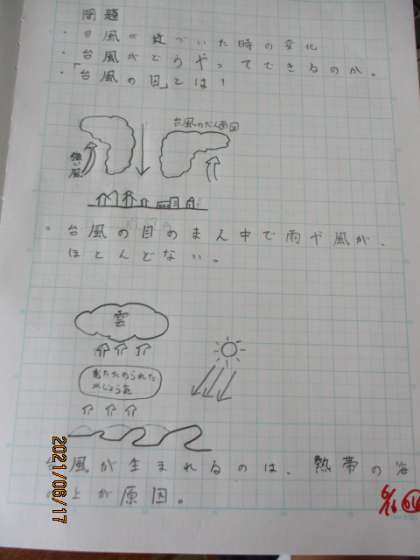 問題
・台風が近づいた時の変化
・台風がどうやってできるのか。
・「台風の目」とは！
台風のだん面図
強い風
・台風の目のまん中で雨や風が、
ほとんどない。
雲
あたためられた
水じょう気
風が生まれるのは、熱帯の
とが原因。
2021/06/17